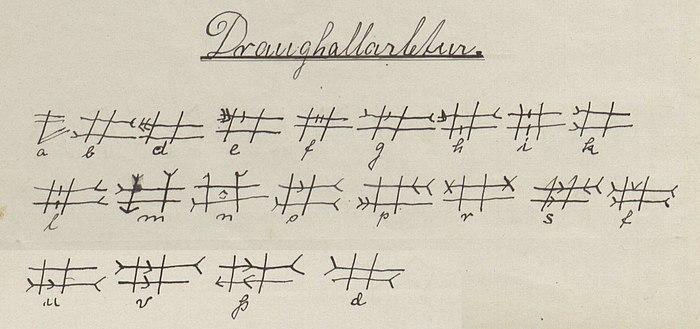 Draughallarletur.
a b d e f g h i k
l m n o p r s t
u v þ d